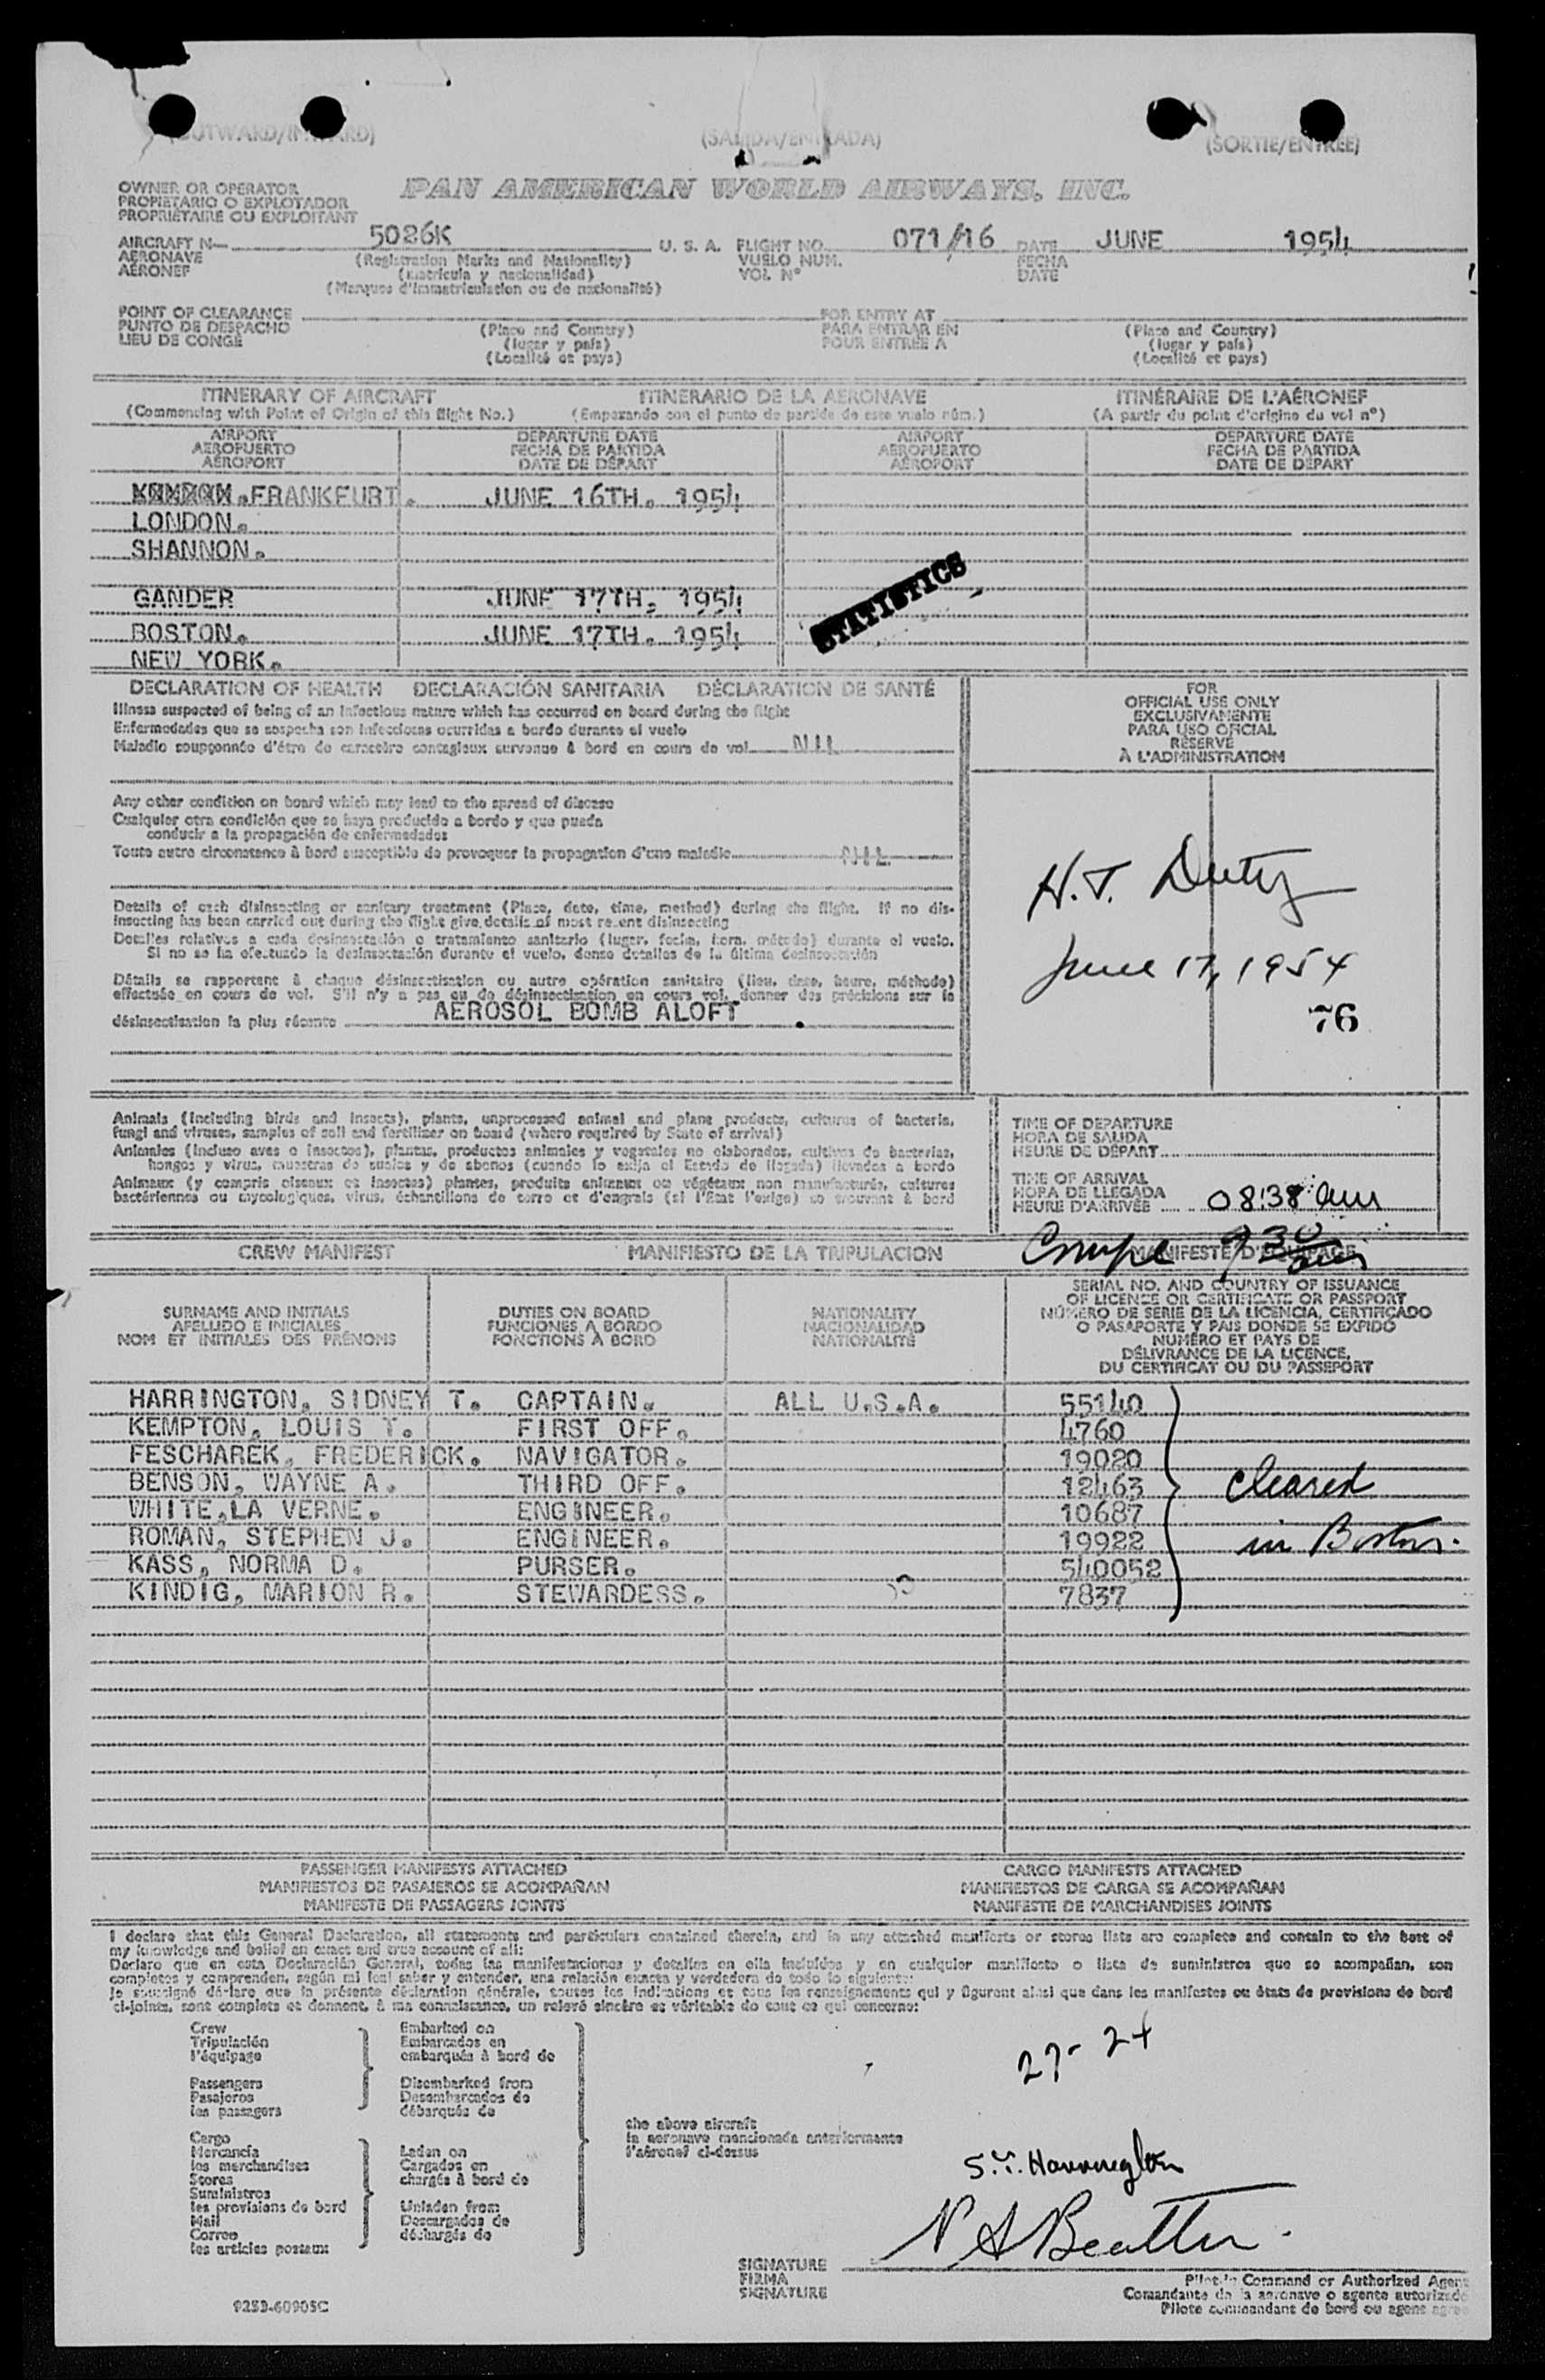 (OUTWARD/INWARD) (SALIDA/ENTRADA) (SORTIE/ENTREE)
OWNER OR OPERATOR
PROPIETARIO O EXPLOTADOR
PROPRIÉTAIRE OU EXPLOITANT
PAN AMERICAN WORLD AIRWAYS, INC.
AIRCRAFT N— 5026K U. S. A. FLIGHT NO. 071/16 DATE JUNE 1954
AERONAVE (Registration Marks and Nationality) VUELO NUM. FECHA
AÉRONEF (Matricula y nacionalidad) VOL N° DATE
(Marques d'immatriculation ou de nationalité)
POINT OF CLEARANCE FOR ENTRY AT
PUNTO DE DESPACHO (Place and Country) PARA ENTRAR EN (Place and Country)
LIEU DE CONGÉ (lugar y país) POUR ENTRÉE A (lugar y país)
(Localité et pays) (Localité et pays)
ITINERARY OF AIRCRAFT ITINERARIO DE LA AERONAVE ITINÉRAIRE DE L'AÉRONEF
(Commencing with Point of Origin of this flight No.) (Empezando con el punto de partida de este vuelo núm.) (A partir du point d'origine du vol n°)
AIRPORT DEPARTURE DATE AIRPORT DEPARTURE DATE
AEROPUERTO FECHA DE PARTIDA AEROPUERTO FECHA DE PARTIDA
AÉROPORT DATE DE DÉPART AÉROPORT DATE DE DÉPART
FRANKFURT. JUNE 16TH. 1954
LONDON.
SHANNON.
GANDER JUNE 17TH, 1954
BOSTON. JUNE 17TH. 1954
NEW YORK.
STATISTICS
DECLARATION OF HEALTH DECLARACIÓN SANITARIA DÉCLARATION DE SANTÉ
Illness suspected of being of an infectious nature which has occurred on board during the flight
Enfermedades que se sospecha son infecciosas ocurridas a bordo durante el vuelo
Maladie soupçonnée d'être de caractère contagieux survenue à bord en cours de vol NIL
Any other condition on board which may lead to the spread of disease
Cualquier otra condición que se haya producido a bordo y que pueda
conducir a la propagación de enfermedades
Toute autre circonstance à bord susceptible de provoquer la propagation d'une maladie NIL
Details of each disinsecting or sanitary treatment (Place, date, time, method) during the flight. If no dis-
insecting has been carried out during the flight give details of most recent disinsecting
Detalles relativos a cada desinsectación o tratamiento sanitario (lugar, fecha, hora, método) durante el vuelo.
Si no se ha efectuado la desinsectación durante el vuelo, dense detalles de la última desinsectación
Détails se rapportant à chaque désinsectisation ou autre opération sanitaire (lieu, date, heure, méthode)
effectuée en cours de vol. S'il n'y a pas eu de désinsectisation en cours vol, donner des précisions sur la
désinsectisation la plus récente AEROSOL BOMB ALOFT
FOR
OFFICIAL USE ONLY
EXCLUSIVAMENTE
PARA USO OFICIAL
RÉSERVÉ
À L'ADMINISTRATION
H.T.
June 17, 1954
76
Animals (including birds and insects), plants, unprocessed animal and plane products, cultures of bacteria,
fungi and viruses, samples of soil and fertilizer on board (where required by State of arrival)
Animales (incluso aves e insectos), plantas, productos animales y vegetales no elaborados, cultivos de bacterias,
hongos y virus, muestras de suelos y de abonos (cuando lo exija el Estado de llegada) llevados a bordo
Animaux (y compris oiseaux et insectes) plantes, produits animaux ou végétaux non manufacturés, cultures
bactériennes ou mycologiques, virus, échantillons de terre et d'engrais (si l'État l'exige) se trouvant à bord
TIME OF DEPARTURE
HORA DE SALIDA
HEURE DE DÉPART
TIME OF ARRIVAL
HORA DE LLEGADA
HEURE D'ARRIVÉE 08:38 am
930
CREW MANIFEST MANIFIESTO DE LA TRIPULACION MANIFESTE D'EQUIPAGE
SURNAME AND INITIALS DUTIES ON BOARD NATIONALITY
APELLIDO E INICIALES FUNCIONES A BORDO NACIONALIDAD
NOM ET INITIALES DES PRÉNOMS FONCTIONS À BORD NATIONALITÉ
SERIAL NO. AND COUNTRY OF ISSUANCE
OF LICENCE OR CERTIFICATE OR PASSPORT
NÚMERO DE SERIE DE LA LICENCIA, CERTIFICADO
O PASAPORTE Y PAIS DONDE SE EXPIDÓ
NUMÉRO ET PAYS DE
DÉLIVRANCE DE LA LICENCE,
DU CERTIFICAT OU DU PASSEPORT
HARRINGTON, SIDNEY T. CAPTAIN. ALL U.S.A. 55140
KEMPTON, LOUIS T. FIRST OFF. 4760
FESCHAREK, FREDERICK. NAVIGATOR. 19020
BENSON, WAYNE A. THIRD OFF. 12463 cleared
WHITE,LA VERNE. ENGINEER. 10687
ROMAN, STEPHEN J. ENGINEER. 19922 in Boston.
KASS, NORMA D. PURSER. 540052
KINDIG, MARION R. STEWARDESS. 7837
PASSENGER MANIFESTS ATTACHED CARGO MANIFESTS ATTACHED
MANIFIESTOS DE PASAJEROS SE ACOMPAÑAN MANIFIESTOS DE CARGA SE ACOMPAÑAN
MANIFESTE DE PASSAGERS JOINTS MANIFESTE DE MARCHANDISES JOINTS
I declare that this General Declaration, all statements and particulars contained therein, and in any attached manifests or stores lists are complete and contain to the best of
my knowledge and belief an exact and true account of all:
Declaro que en esta Declaración General, todas las manifestaciones y detalles en ella incluidos y en cualquier manifiesto o lista de suministros que se acompañan, son
completos y comprenden, según mi leal saber y entender, una relación exacta y verdadera de todo lo siguiente:
Je soussigné déclare que la présente déclaration générale, toutes les indications et tous les renseignements qui y figurent ainsi que dans les manifestes ou états de provisions de bord
ci-joints, sont complets et donnent, à ma connaissance, un relevé sincère et véritable de tout ce qui concerne:
Crew Embarked on
Tripulación Embarcados en
l'équipage embarqués à bord de
Passengers Disembarked from
Pasajeros Desembarcados de
les passagers débarqués de
Cargo
Mercancía Laden on
les marchandises Cargados en
Stores chargés à bord de
Suministros
les provisions de bord Unladen from
Mail Descargados de
Correo déchargés de
les articles postaux
the above aircraft
la aeronave mencionada anteriormente
l'aéronef ci-dessus
27- 24
S.T. Harrington
SIGNATURE
FIRMA
SIGNATURE
Pilot in Command or Authorized Agent
Comandante de la aeronave o agente autorizado
Pilote commandant de bord ou agent agréé
9253-60905C